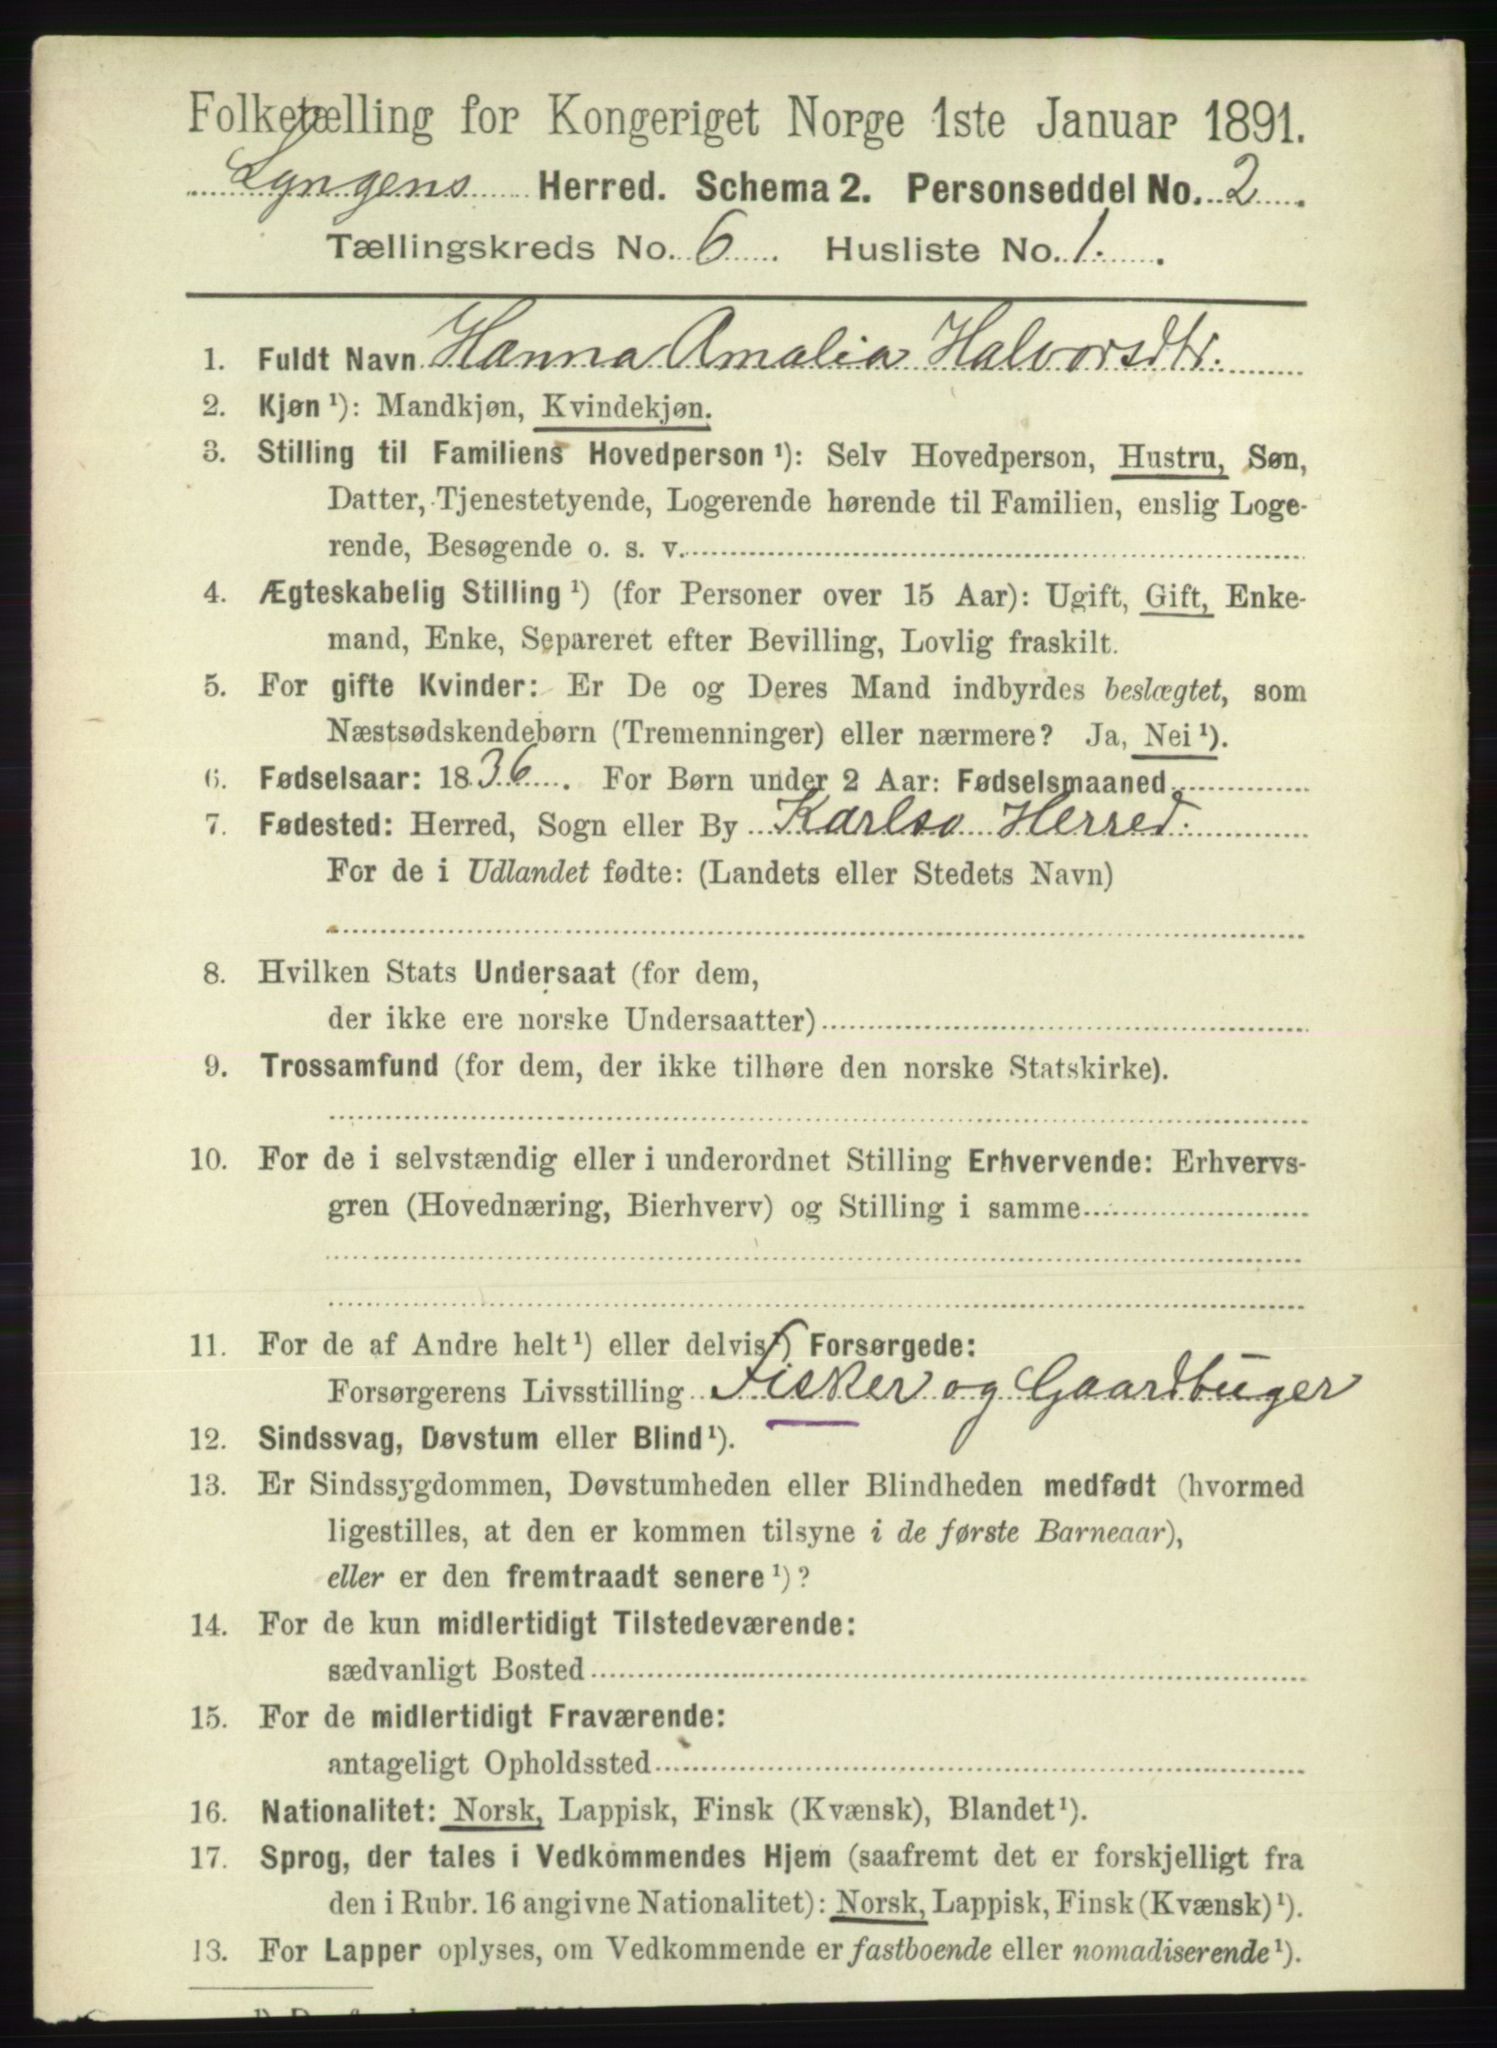 Folketælling for Kongeriget Norge 1ste Januar 1891.
Lyngens Herred. Schema 2. Personseddel No. 2.
Tællingskreds No. 6. Husliste No. 1.
1. Fuldt Navn Hanna Amalia Halvorsdtr.
2. Kjøn¹): Mandkjøn, Kvindekjøn.
3. Stilling til Familiens Hovedperson¹): Selv Hovedperson, Hustru, Søn,
Datter, Tjenestetyende, Logerende hørende til Familien, enslig Loge-
rende, Besøgende o. s. v.
4. Ægteskabelig Stilling¹) (for Personer over 15 Aar): Ugift, Gift, Enke-
mand, Enke, Separeret efter Bevilling, Lovlig fraskilt.
5. For gifte Kvinder: Er De og Deres Mand indbyrdes beslægtet, som
Næstsødskendebørn (Tremenninger) eller nærmere? Ja, Nei¹).
6. Fødselsaar: 1836. For Børn under 2 Aar: Fødselsmaaned
7. Fødested: Herred, Sogn eller By Karlsø Herred.
For de i Udlandet fødte: (Landets eller Stedets Navn)
8. Hvilken Stats Undersaat (for dem,
der ikke ere norske Undersaatter)
9. Trossamfund (for dem, der ikke tilhøre den norske Statskirke).
10. For de i selvstændig eller i underordnet Stilling Erhvervende: Erhvervs-
gren (Hovednæring, Bierhverv) og Stilling i samme
11. For de af Andre helt¹) eller delvis¹) Forsørgede:
Forsørgerens Livsstilling Fisker og Gaardbuger
12. Sindssvag, Døvstum eller Blind¹).
13. Er Sindssygdommen, Døvstumheden eller Blindheden medfødt (hvormed
ligestilles, at den er kommen tilsyne i de første Barneaar),
eller er den fremtraadt senere¹)?
14. For de kun midlertidigt Tilstedeværende:
sædvanligt Bosted
15. For de midlertidigt Fraværende:
antageligt Opholdssted
16. Nationalitet: Norsk, Lappisk, Finsk (Kvænsk), Blandet¹).
17. Sprog, der tales i Vedkommendes Hjem (saafremt det er forskjelligt fra
den i Rubr. 16 angivne Nationalitet): Norsk, Lappisk, Finsk (Kvænsk)¹).
13. For Lapper oplyses, om Vedkommende er fastboende eller nomadiserende¹).